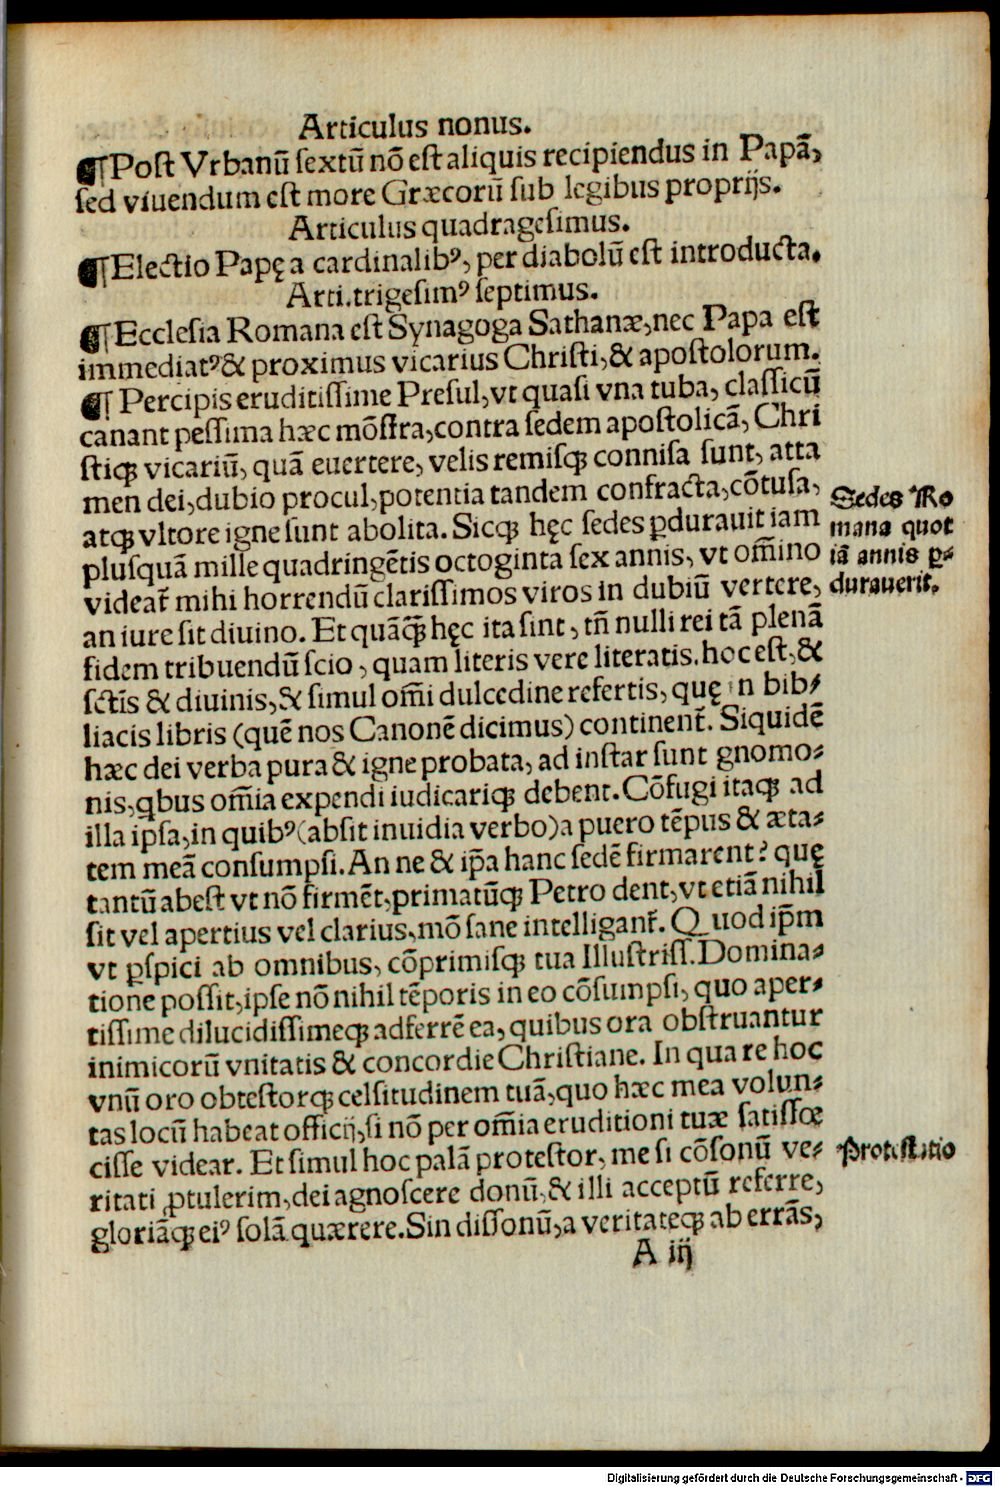 Articulus nonus.
¶ Post Vrbanū sextū nō est aliquis recipiendus in Papā,
sed viuendum est more Græcorū sub legibus proprijs.
Articulus quadragesimus.
¶ Electio Papę a cardinalibꝰ, per diabolū est introducta.
Arti. trigesimꝰ septimus.
¶ Ecclesia Romana est Synagoga Sathanæ, nec Papa est
immediatꝰ & proximus vicarius Christi, & apostolorum.
¶ Percipis eruditissime Presul, vt quasi vna tuba, classicū
canant pessima hæc mōstra, contra sedem apostolicā, Chri
stiqꝫ vicariū, quā euertere, velis remisqꝫ connisa sunt, atta
men dei, dubio procul, potentia tandem confracta, cōtusa,
atqꝫ vltore igne sunt abolita. Sicqꝫ hęc sedes ꝑdurauit iam
plusquā mille quadringētis octoginta sex annis, vt om̄ino
videat̄ mihi horrendū clarissimos viros in dubiū vertere,
an iure sit diuino. Et quāqꝫ̄ hęc ita sint, tn̄ nulli rei tā plenā
fidem tribuendū scio, quam literis vere literatis. hoc est, &
sctīs & diuinis, & simul om̄i dulcedine refertis, quę in bib⸗
liacis libris (quē nos Canonē dicimus) continent̄. Siquidē
hæc dei verba pura & igne probata, ad instar sunt gnomo⸗
nis, qbus om̄ia expendi iudicariqꝫ debent. Cōfugi itaqꝫ ad
illa ipsa, in quibꝰ (absit inuidia verbo) a puero tēpus & æta⸗
tem meā consumpsi. An ne & ip̄a hanc sedē firmarent? quę
tantū abest vt nō firmēt, primatūqꝫ Petro dent, vt etiā nihil
sit vel apertius vel clarius, mō sane intelligant̄. Quod ip̄m
vt ꝑspici ab omnibus, cōprimisqꝫ tua Illustriss. Domina⸗
tione possit, ipse nō nihil tēporis in eo cōsumpsi, quo aper⸗
tissime dilucidissimeqꝫ adferrē ea, quibus ora obstruantur
inimicorū vnitatis & concordie Christiane. In qua re hoc
vnū oro obtestorqꝫ celsitudinem tuā, quo hæc mea volun⸗
tas locū habeat officij, si nō per om̄ia eruditioni tuæ satisfœ
cisse videar. Et simul hoc palā protestor, me si cōsonū ve⸗
ritati ꝓtulerim, dei agnoscere donū, & illi acceptū referre,
gloriāqꝫ eiꝰ solā quærere. Sin dissonū, a veritateqꝫ ab errās,
A iij
Sedes Ro
mana quot
iā annis ꝑ⸗
durauerit.
Protestatio
Digitalisierung gefördert durch die Deutsche Forschungsgemeinschaft - DFG